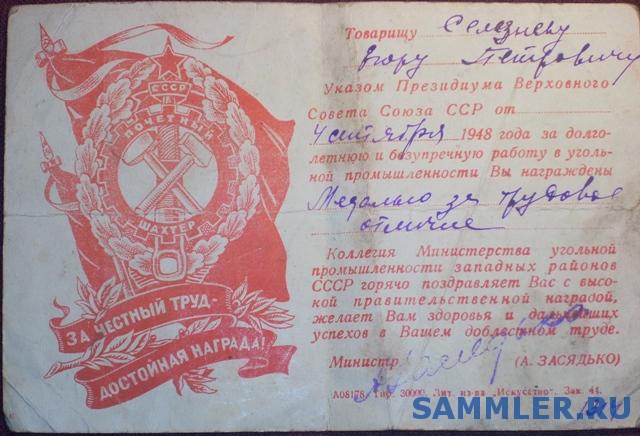 СССР
ПОЧЕТНЫЙ
ШАХТЕР
ЗА ЧЕСТНЫЙ ТРУД-
ДОСТОЙНАЯ НАГРАДА!
Товарищу Селезневу
Егору Петровичу
Указом Президиума Верховного
Совета Союза ССР от
4 сентября 1948 года за долго-
летнюю и безупречную работу в уголь-
ной промышленности Вы награждены
Медалью за трудовое
отличие
Коллегия Министерства угольной
промышленности западных районов
СССР горячо поздравляет Вас с высо-
кой правительственной наградой,
желает Вам здоровья и дальнейших
успехов в Вашем доблестном труде.
Министр (А. ЗАСЯДЬКО)
А08178 Тир. 30000. Лит. из-ва „Искусство“. Зак. 44.
SAMMLER.RU